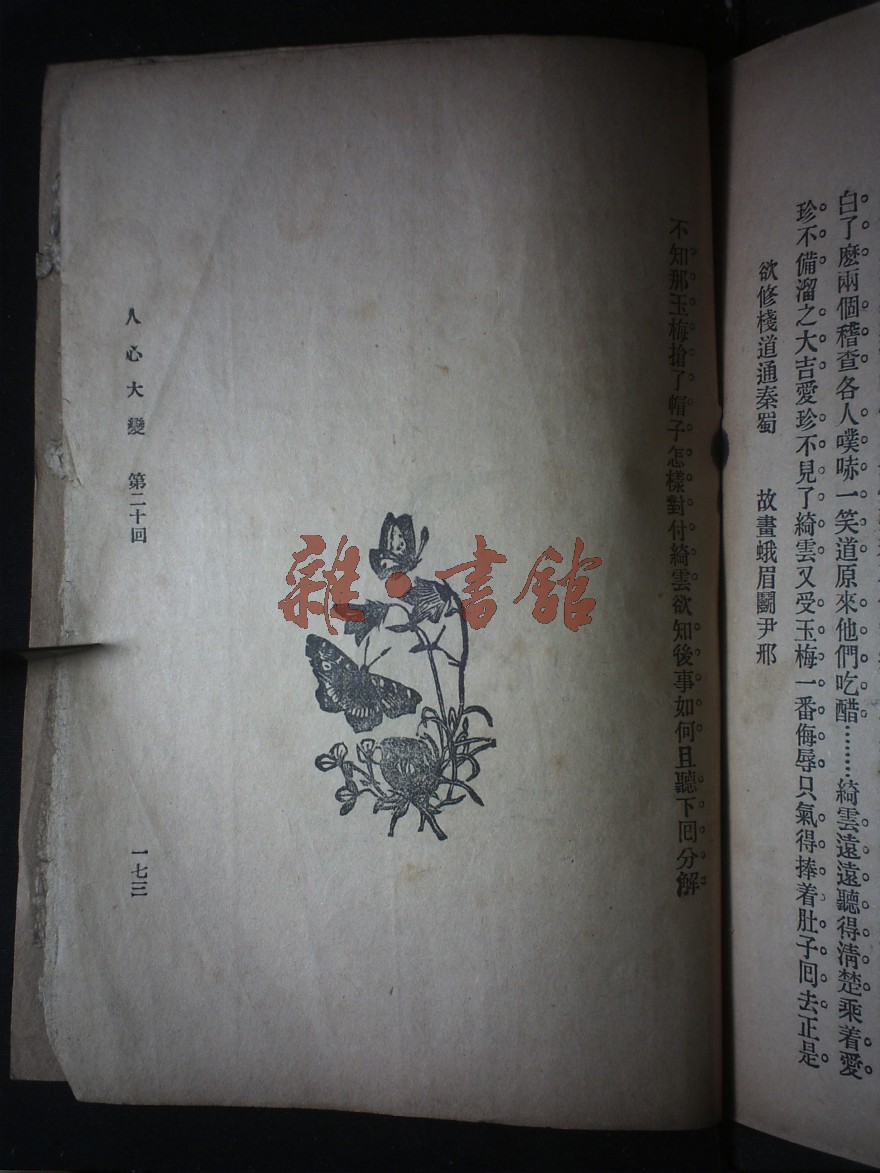 白了麽兩個稽查各人噗哧一笑道原來他們吃醋………綺雲遠遠聽得淸楚乘着愛
珍不備溜之大吉愛珍不見了綺雲又受玉梅一番侮辱只氣得捧着肚子囘去正是
欲修棧道通秦蜀　故畫蛾眉鬭尹邢
不知那玉梅搶了帽子怎樣對付綺雲欲知後事如何且聽下囘分解
人心大變　第二十回
一七三
雜·書館